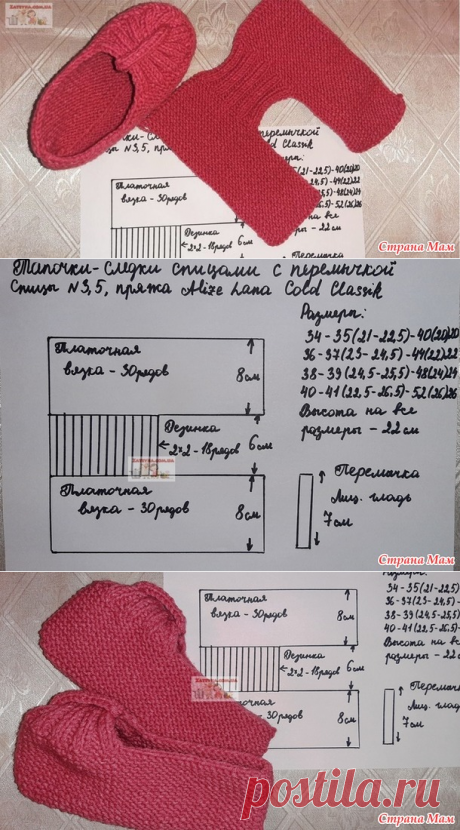 Тапочки-следки спицами с перемычкой
Спицы N3,5, пряжа Alize Lana Gold Classik
Платочная
вязка - 30рядов
8см
Резинка
2×2 - 18рядов
6см
Платочная
вязка - 30рядов
8см
Размеры:
34-35(21-22,5)-40(20)20
36-37(23-24,5)-44(22)22
38-39(24,5-25,5)-48(24)24
40-41(22,5-26,5)-52(26)26
Высота на все
размеры - 22см
Перемычка
Лиц. гладь
7см
Страна Мам
Платочная
вязка - 30рядов
6см
2×2 - 18рядов
Страна Мам
Размеры:
34-35(21-22,5)
36-37(23-24,5)
38-39(24,5-25,5)
40-41(22,5-26,5)
Высота на все
размеры - 22см
Платочная
вязка - 30рядов
8см
Резинка
2×2 - 18рядов
6см
вязка - 30рядов
8см
Перемычка
Лиц. гладь
7см
Страна Мам
postila.ru